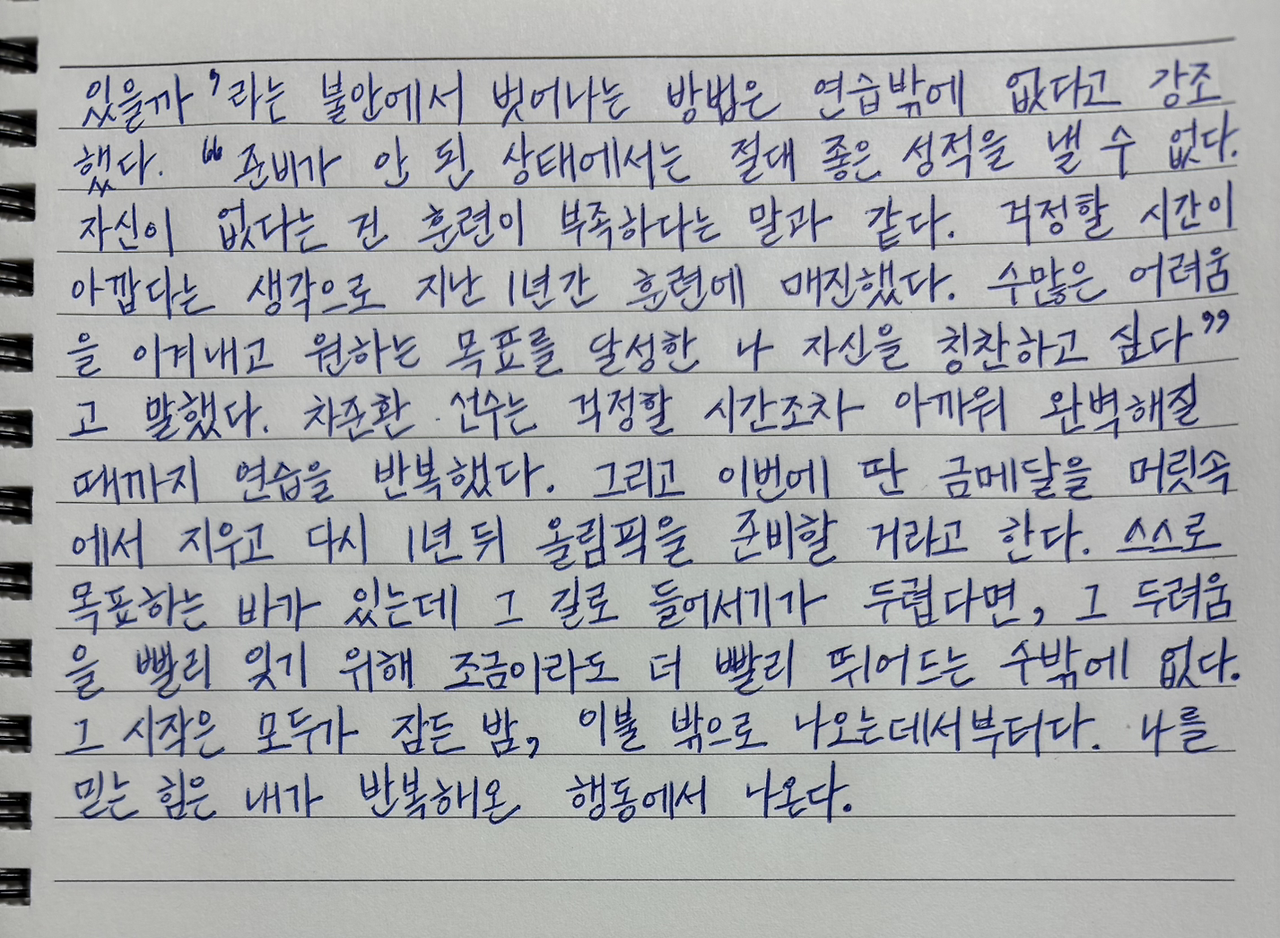 있을까’라는 불안에서 벗어나는 방법은 연습밖에 없다고 강조
했다. “준비가 안 된 상태에서는 절대 좋은 성적을 낼 수 없다.
자신이 없다는 건 훈련이 부족하다는 말과 같다. 걱정할 시간이
아깝다는 생각으로 지난 1년간 훈련에 매진했다. 수많은 어려움
을 이겨내고 원하는 목표를 달성한 나 자신을 칭찬하고 싶다”
고 말했다. 차준환 선수는 걱정할 시간조차 아까워 완벽해질
때까지 연습을 반복했다. 그리고 이번에 딴 금메달을 머릿속
에서 지우고 다시 1년 뒤 올림픽을 준비할 거라고 한다. 스스로
목표하는 바가 있는데 그 길로 들어서기가 두렵다면, 그 두려움
을 빨리 잊기 위해 조금이라도 더 빨리 뛰어드는 수밖에 없다.
그 시작은 모두가 잠든 밤, 이불 밖으로 나오는데서부터다. 나를
믿는 힘은 내가 반복해온 행동에서 나온다.